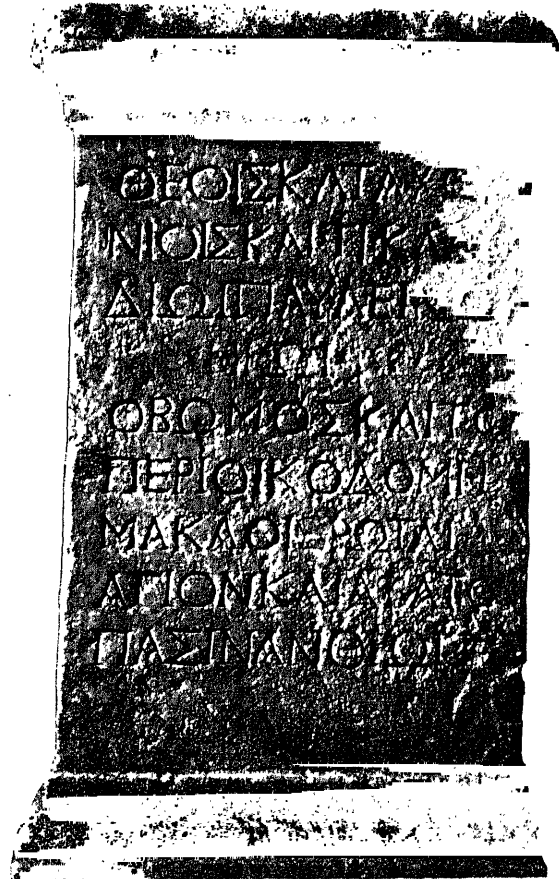 ΘΕΟΙΣΚΑΤΑΧ
ΝΙΟΙΣΚΑΙΤΙΚΛΑ
ΔΙΩΙΠΑΥΛΕΙ
ΗΡΩΙ
ΟΒΩΜΟΣΚΑΙΤΟ
ΠΕΡΙΟΙΚΟΔΟΜΗ
ΜΑΚΑΘΙΕΡΩΤΑΙ
ΑΓΙΟΝΚΑΙΑΓΑΤΟ
ΠΑΣΙΝΑΝΘΡΩΠ